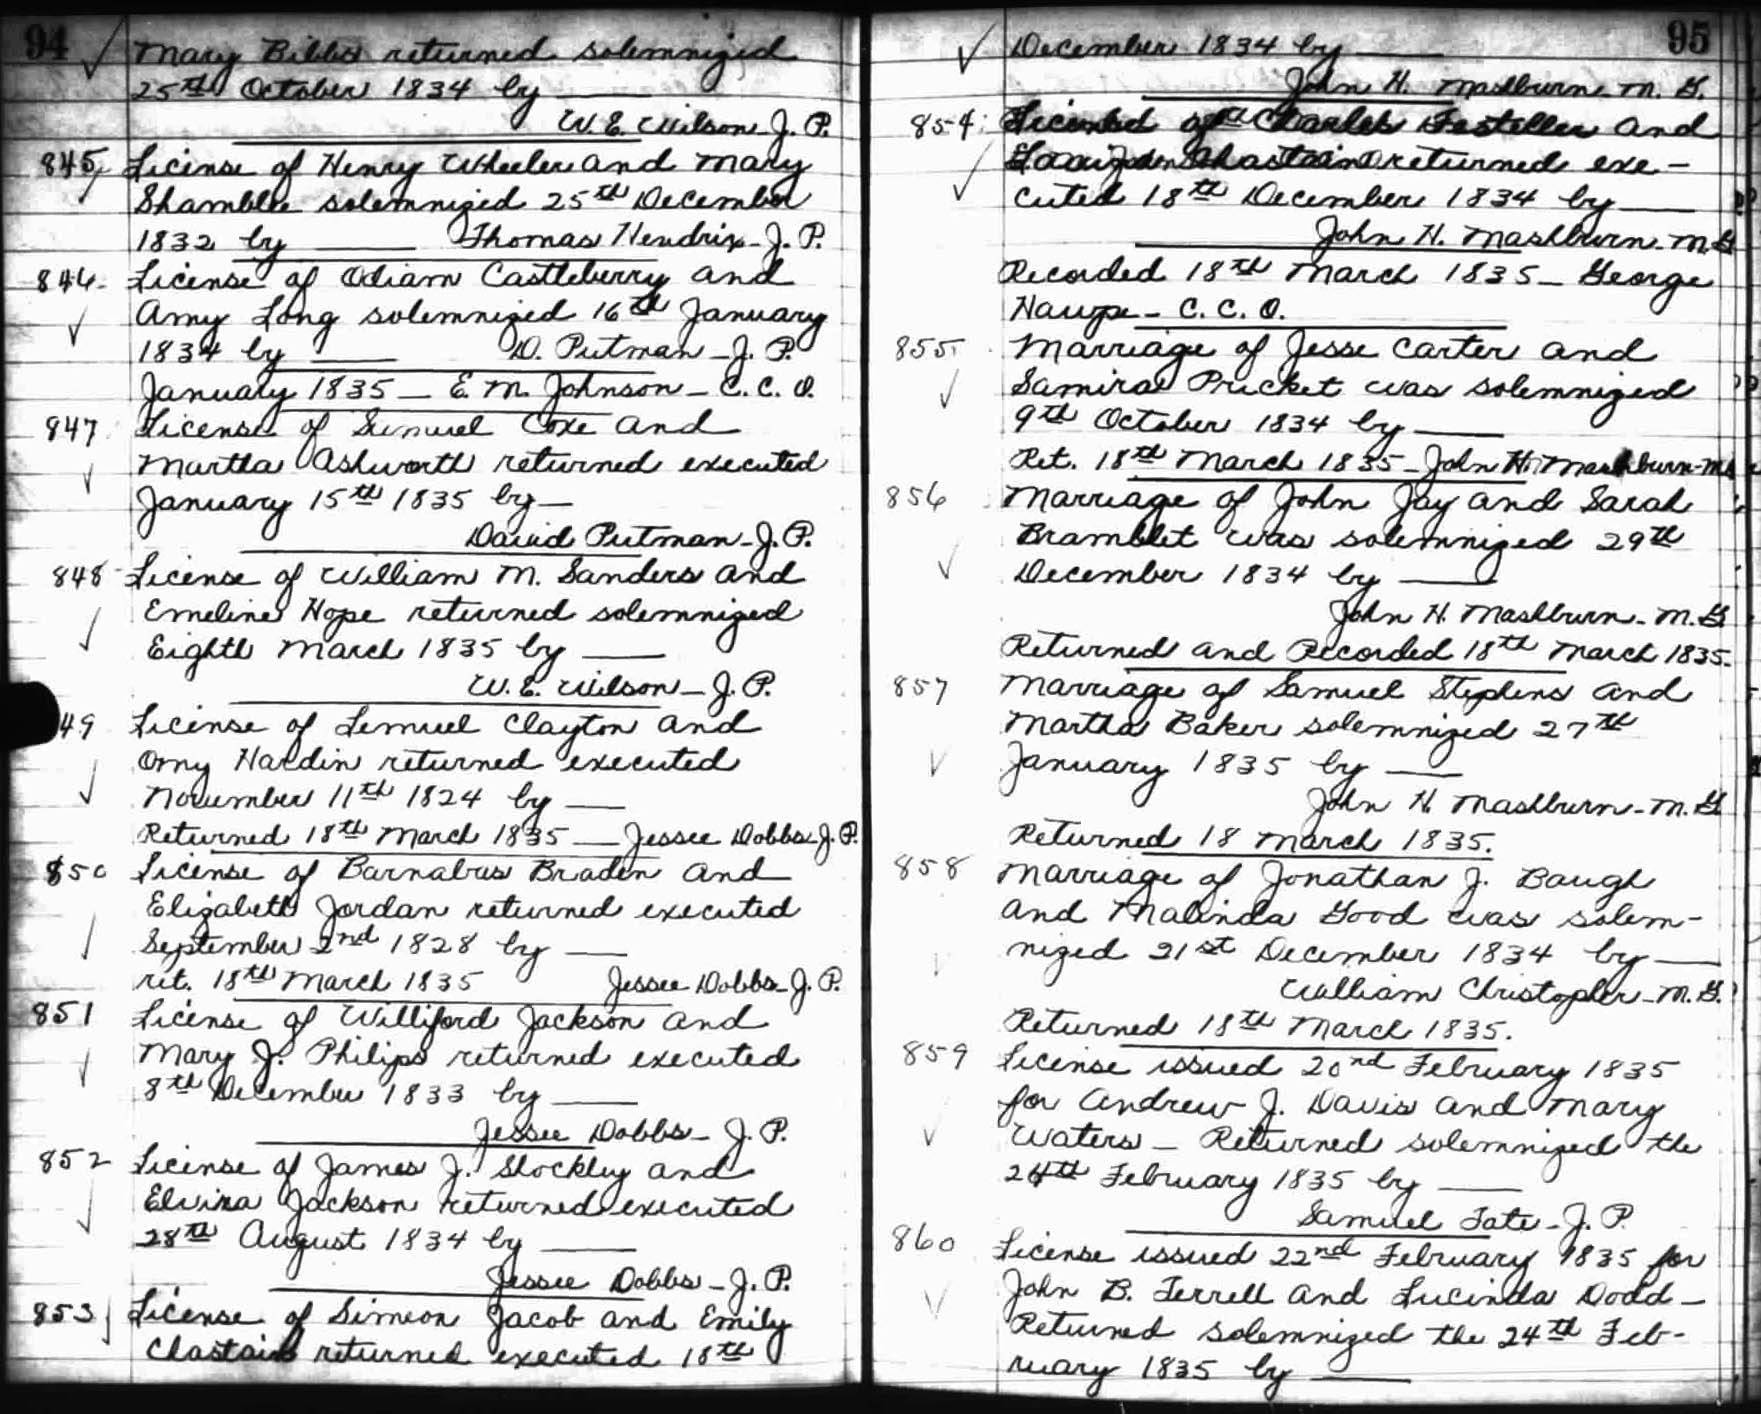 94
Mary Bibbs returned solemnized
25th October 1834 by
W. E. Wilson J. P.
845 License of Henry Wheeler and Mary
Shamblee solemnized 25th December
1832 by Thomas Hendrix - J. P.
846 License of Odiam Castleberry and
Amy Long solemnized 16th January
1834 by D. Putman - J. P.
January 1835 - E. M. Johnson - C. C. O.
847 License of Samuel Coxe and
Martha Ashworth returned executed
January 15th 1835 by -
David Putman - J. P.
848 License of William M. Sanders and
Emeline Hope returned solemnized
Eighth March 1835 by
W. E. Wilson - J. P.
49 License of Lemuel Clayton and
Omy Hardin returned executed
November 11th 1824 by
Returned 18th March 1835 - Jessee Dobbs J. P.
850 License of Barnabus Braden and
Elizabeth Jordan returned executed
September 2nd 1828 by
ret. 18th March 1835 Jessee Dobbs - J. P.
851 License of Williford Jackson and
Mary J. Philips returned executed
8th December 1833 by
Jessee Dobbs - J. P.
852 License of James J. Shockley and
Elvira Jackson returned executed
28th August 1834 by
Jessee Dobbs - J. P.
853 License of Simeon Jacob and Emily
Chastain returned executed 18th
95
December 1834 by
John H. Mashburn - M. G.
854 of Charles and
returned exe-
cuted 18th December 1834 by
John H. Mashburn - M. G
Recorded 18th March 1835 - George
Haupe - C. C. O.
855 Marriage of Jesse Carter and
Samira Pricket was solemnized
9th October 1834 by
Ret. 18th March 1835 - John H. Mashburn - M
856 Marriage of John Jay and Sarah
Bramblet was solemnized 29th
December 1834 by
John H. Mashburn - M. G
Returned and Recorded 18th March 1835.
857 Marriage of Samuel Stephens and
Martha Baker solemnized 27th
January 1835 by
John H. Mashburn - M. G
Returned 18 March 1835.
858 Marriage of Jonathan J. Baugh
and Malinda Good was solem-
nized 21st December 1834 by
William Christopher - M. G.
Returned 18th March 1835.
859 License issued 20nd February 1835
for Andrew J. Davis and Mary
Waters - Returned solemnized the
24th February 1835 by
Samuel Tate - J. P.
860 License issued 22nd February 1835 for
John B. Terrell and Lucinda Dodd -
Returned solemnized the 24th Feb-
ruary 1835 by